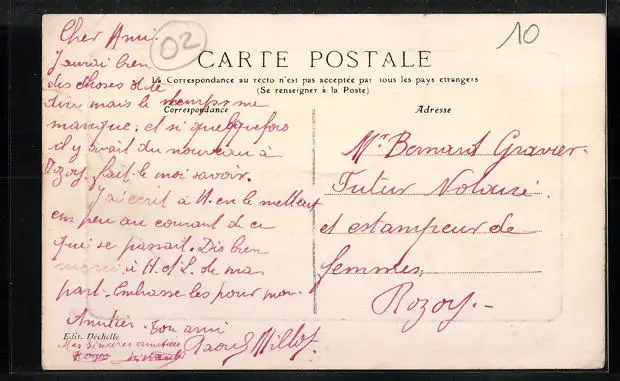 02
10
CARTE POSTALE
La Correspondance au recto n'est pas acceptée par tous les pays étrangers
(Se renseigner à la Poste)
Correspondance
Adresse
Cher Ami.
J'aurai bien
des choses à te
dire mais le temps me
manque; et si quelquefois
il y avait du nouveau à
Rozoy, fait-le moi savoir.
J'ai écrit à H. en le mettant
un peu au courant de ce
qui se passait. Dis bien
merci à H. et L. de ma
part. Embrasse les pour moi.
Amitiés. Ton ami
Raoul Millot.
Mes sincères amitiés
Mr. Bernard Gravier.
Futur Notaire
et estampeur de
femmes,
Rozoy.-
Edit. Déchelle